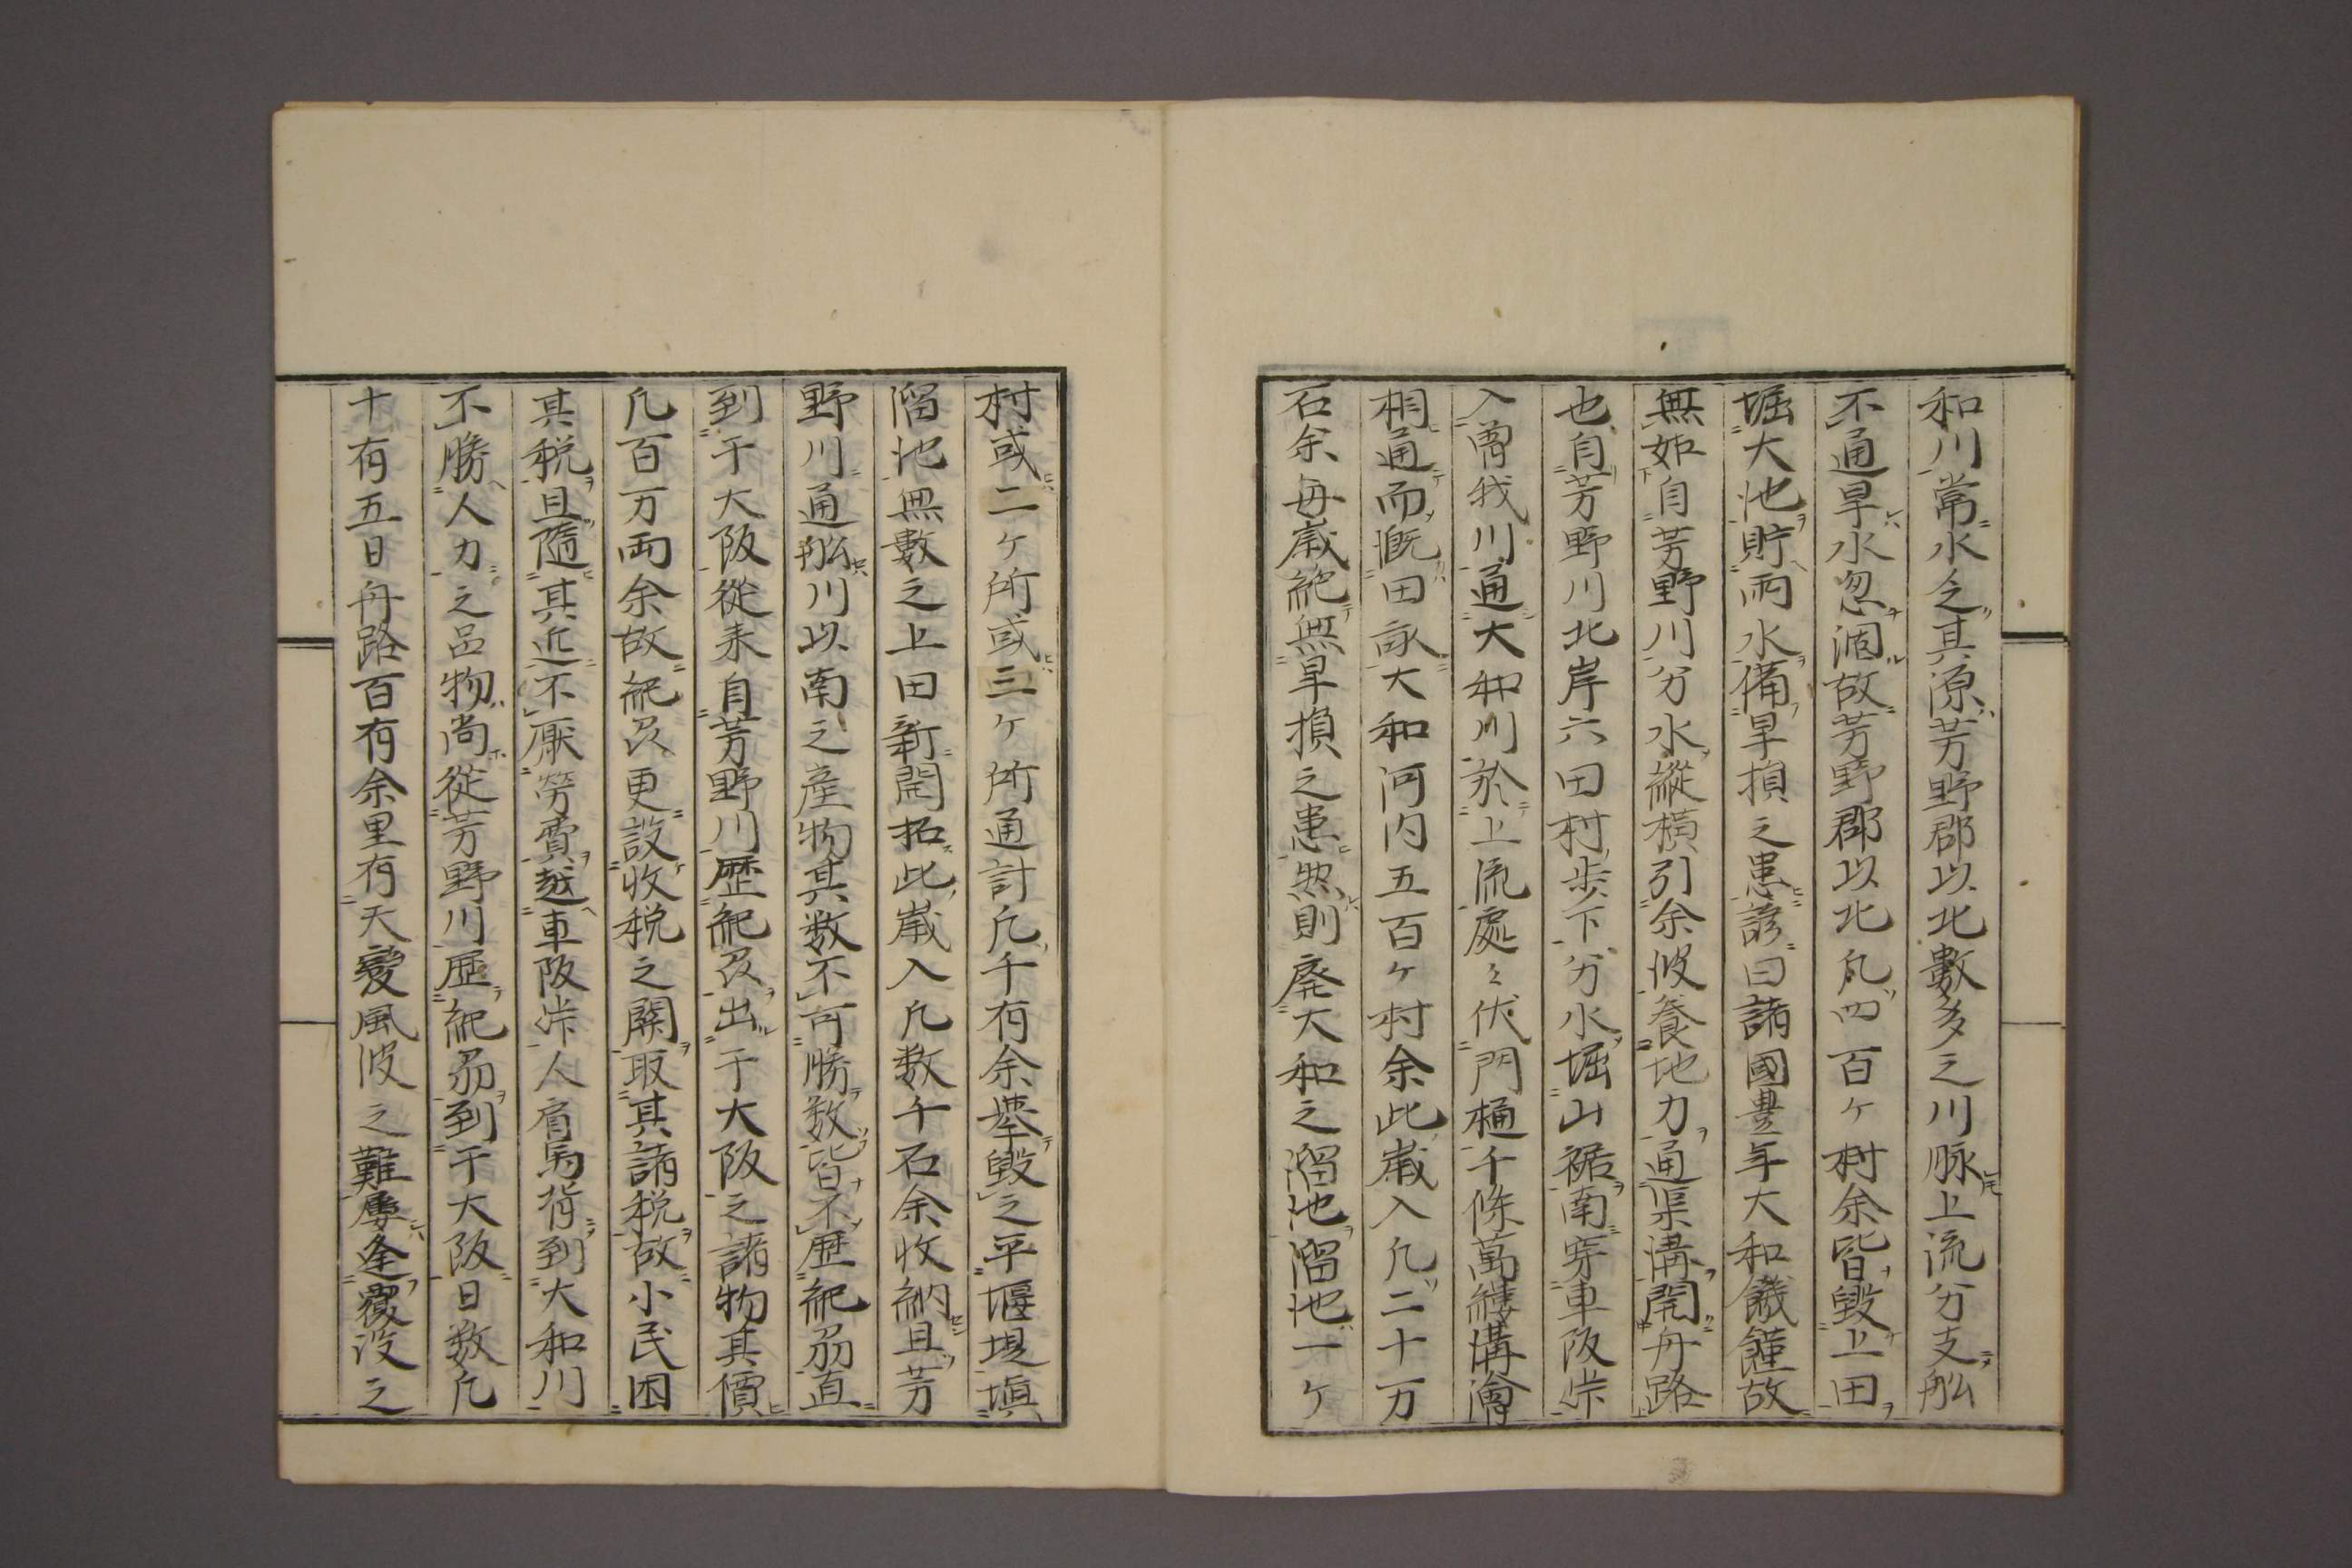 和川常水乏其源芳野郡以北數多之川脉上流分支舩
不通旱水忽涸故芳野郡以北凡四百ヶ村余皆毀上田
堀大池貯雨水備旱損之患諺曰諸國豊年大和饑饉故
無如自芳野川分水縱橫引余波養地力通渠溝開舟路
也自芳野川北岸六田村歩下分水堀山裾南穿車阪峠
入曽我川通大和川於上流處々伏門樋千條萬縷溝澮
相通而漑田畝大和河内五百ヶ村余此歳入凡二十万
石余毎歳絶無旱損之患然則廃大和之溜池溜池一ヶ
村或二ヶ所或三ヶ所通計凡千有余挙毀之平堰堤塡
溜池無數之上田新開拓此歳入凡数千石余收納且芳
野川通舩川以南之產物其数不可勝数皆不歴紀刕直
到于大阪從来自芳野川歷紀刕出于大阪之諸物其價
凡百万両余故紀刕更設收税之關取其諸税故小民困
其税且隨其近不厭勞費越車阪峠人肩馬背到大和川
不勝人力之品物尚從芳野川歴紀刕到于大阪日数凡
十有五日舟路百有余里有天變風波之難屢逢覆没之